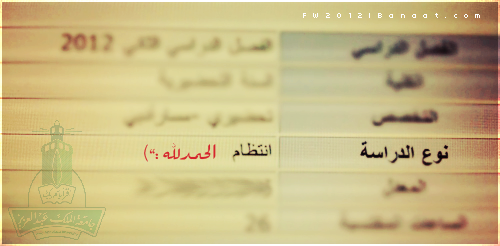 FW2012|Banaat.com
الفصل الدراسي الفصل الدراسي الثاني 2012
الكلية السنة التحضيرية
التخصص تحضيري -مسار أدبي
نوع الدراسة انتظام الحمدلله :")
المعدل
26
جامعة الملك عبدالعزيز